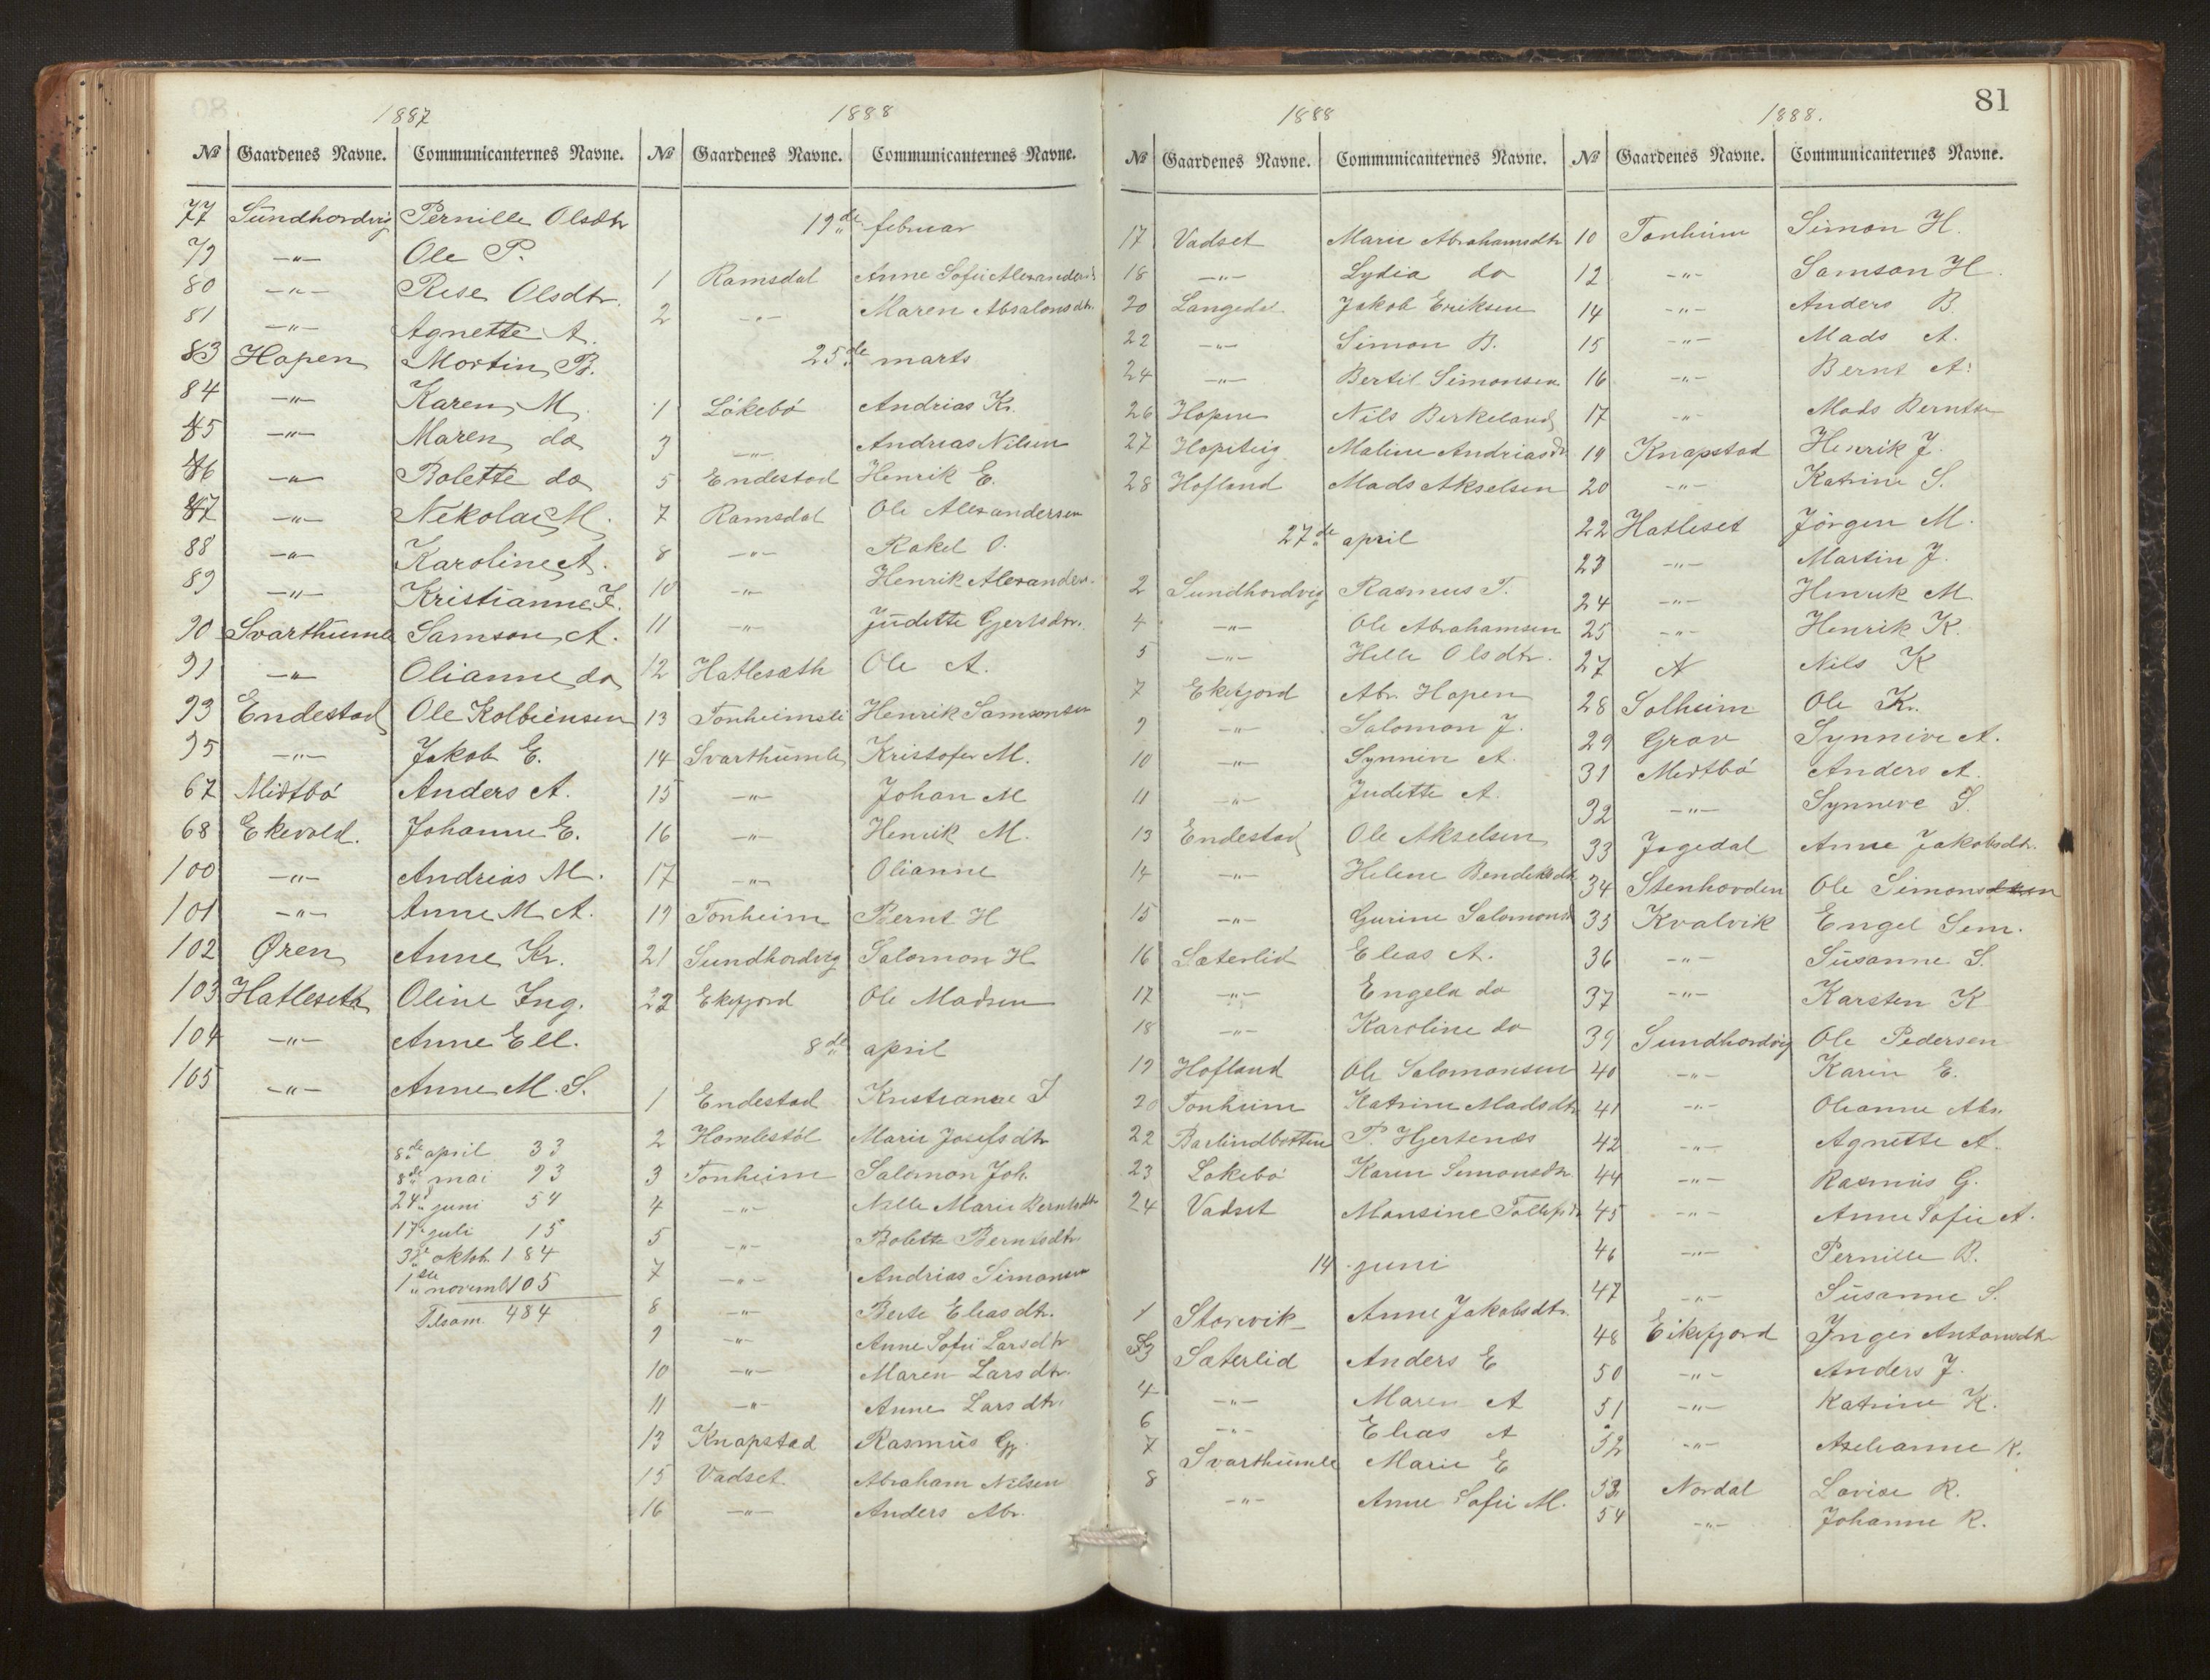 81
1887
№ Gaardenes Navne. Communicanternes Navne.
77 Sundhordvig Pernille Olsdtr
79 —"— Ole P.
80 —"— Rise Olsdtr.
81 —"— Agnette A.
83 Hopen Mortin B.
84 —"— Karen M.
85 —"— Maren do
86 —"— Bolette do
87 —"— Nekolai M.
88 —"— Karoline A.
89 —"— Kristianne J.
90 Svarthumle Samson A.
91 —"— Olianne do
93 Endestad Ole Kolbiensen
95 —"— Jakob E.
67 Midtbö Anders A.
68 Ekevold. Johanne E.
100 —"— Andreas M.
101 —"— Anne M. A.
102 Øren Anne Kr.
103 Hatleseth Oline Ing.
104 —"— Anne Ell.
105 —"— Anne M. S.
8de april 33
8de mai 93
24" juni 54
17" juli 15
3de oktob. 184
1ste novemb 105
Tilsam. 484
1888
№ Gaardenes Navne. Communicanternes Navne.
19de februar
1 Ramsdal Anne Sofie Alexandersd
2 —"— Maren Absalonsdtr.
25de marts
1 Lökebö Andrias Kr.
3 —"— Andreas Nilsen
5 Endestad Henrik E.
7 Ramsdal Ole Alexandersen
8 —"— Rakel O.
10 —"— Henrik Alexander.
11 —"— Judette Gjertsdtr.
12 Hatlesæth Ole A.
13 Tonheimsli Henrik Samsonsen
14 Svarthumle Kristofer M.
15 —"— Johan M
16 —"— Henrik M.
17 —"— Olianne
19 Tonheim Bernt H
21 Sundhordvig Salomon H
22 Ekefjord Ole Madsen
8de april
1 Endestad Kristianne J
2 Homlestöl Marie Josefsdtr
3 Tonheim Salomon Joh.
4 —"— Nille Marie Berntsdtr
5 —"— Bolette Berntsdtr
7 —"— Andrias Simonsen
8 —"— Berte Eliasdtr.
9 —"— Anne Sofie Larsdtr
10 —"— Maren Larsdtr.
11 —"— Anne Larsdtr.
13 Knapstad Rasmus G.
15 Vadset Abraham Nilsen
16 —"— Anders Abr.
1888
№ Gaardenes Navne. Communicanternes Navne.
17 Vadset Marie Abrahamsdtr
18 —"— Lydia do
20 Langedal Jakob Eriksen
22 —"— Simon B.
24 —"— Bertil Simonsen
26 Hopen Nils Birkeland
27 Hopsteig Maline Andriasd
28 Hofland Mads Akselsen
27de april
2 Sundhordvig Rasmus T.
4 —"— Ole Abrahamsen
5 —"— Hille Olsdtr.
7 Ekefjord Abr. Hopen
9 —"— Salomon J.
10 —"— Synnin A.
11 —"— Juditte A.
13 Endestad Ole Akselsen
14 —"— Helene Bendiksdtr
15 —"— Gurine Salomonsd
16 Sæterlid Elias A.
17 —"— Engela do
18 —"— Karoline do
19 Hofland Ole Salomonsen
20 Tonheim Katrine Madsdtr
22 Barlindbotten P. Hjertenæs
23 Lökebö Karen Simonsdtr.
24 Vadset Monsine Tollefsd
14 juni
1 Storevik Anne Jakobsdtr.
3 Sæterlid Anders E
4 —"— Maren A
6 —"— Elias A
7 Svarthumle Marie E
8 —"— Anne Sofie M.
1888.
№ Gaardenes Navne. Communicanternes Navne.
10 Tonheim Simon H.
12 —"— Samson H.
14 —"— Anders B.
15 —"— Mads A.
16 —"— Bernt A.
17 —"— Mads Berntsen
19 Knapstad Henrik J.
20 —"— Katrine S.
22 Hatleset Jörgen M.
23 —"— Martin J.
24 —"— Henrik M.
25 —"— Henrik K.
27 A Nils K
28 Solheim Ole Kr.
29 Grov Synnive A.
31 Midtbö Anders A.
32 —"— Synneve S.
33 Jagedal Anne Jakobsdtr.
34 Stenhovden Ole Simonsen
35 Kvalvik Engel Sem.
36 —"— Susanne S.
37 —"— Karsten K
39 Sundhordvig Ole Pedersen
40 —"— Karin E.
41 —"— Olianne Abr.
42 —"— Agnette A.
44 —"— Rasmus G.
45 —"— Anne Sofie A.
46 —"— Pernille B.
47 —"— Susanne S.
48 Eikefjord Inger Antonsdtr
50 —"— Anders J.
51 —"— Katrine K.
52 —"— Aselianne K.
53 Nordal Lovise R.
54 —"— Johanne R.